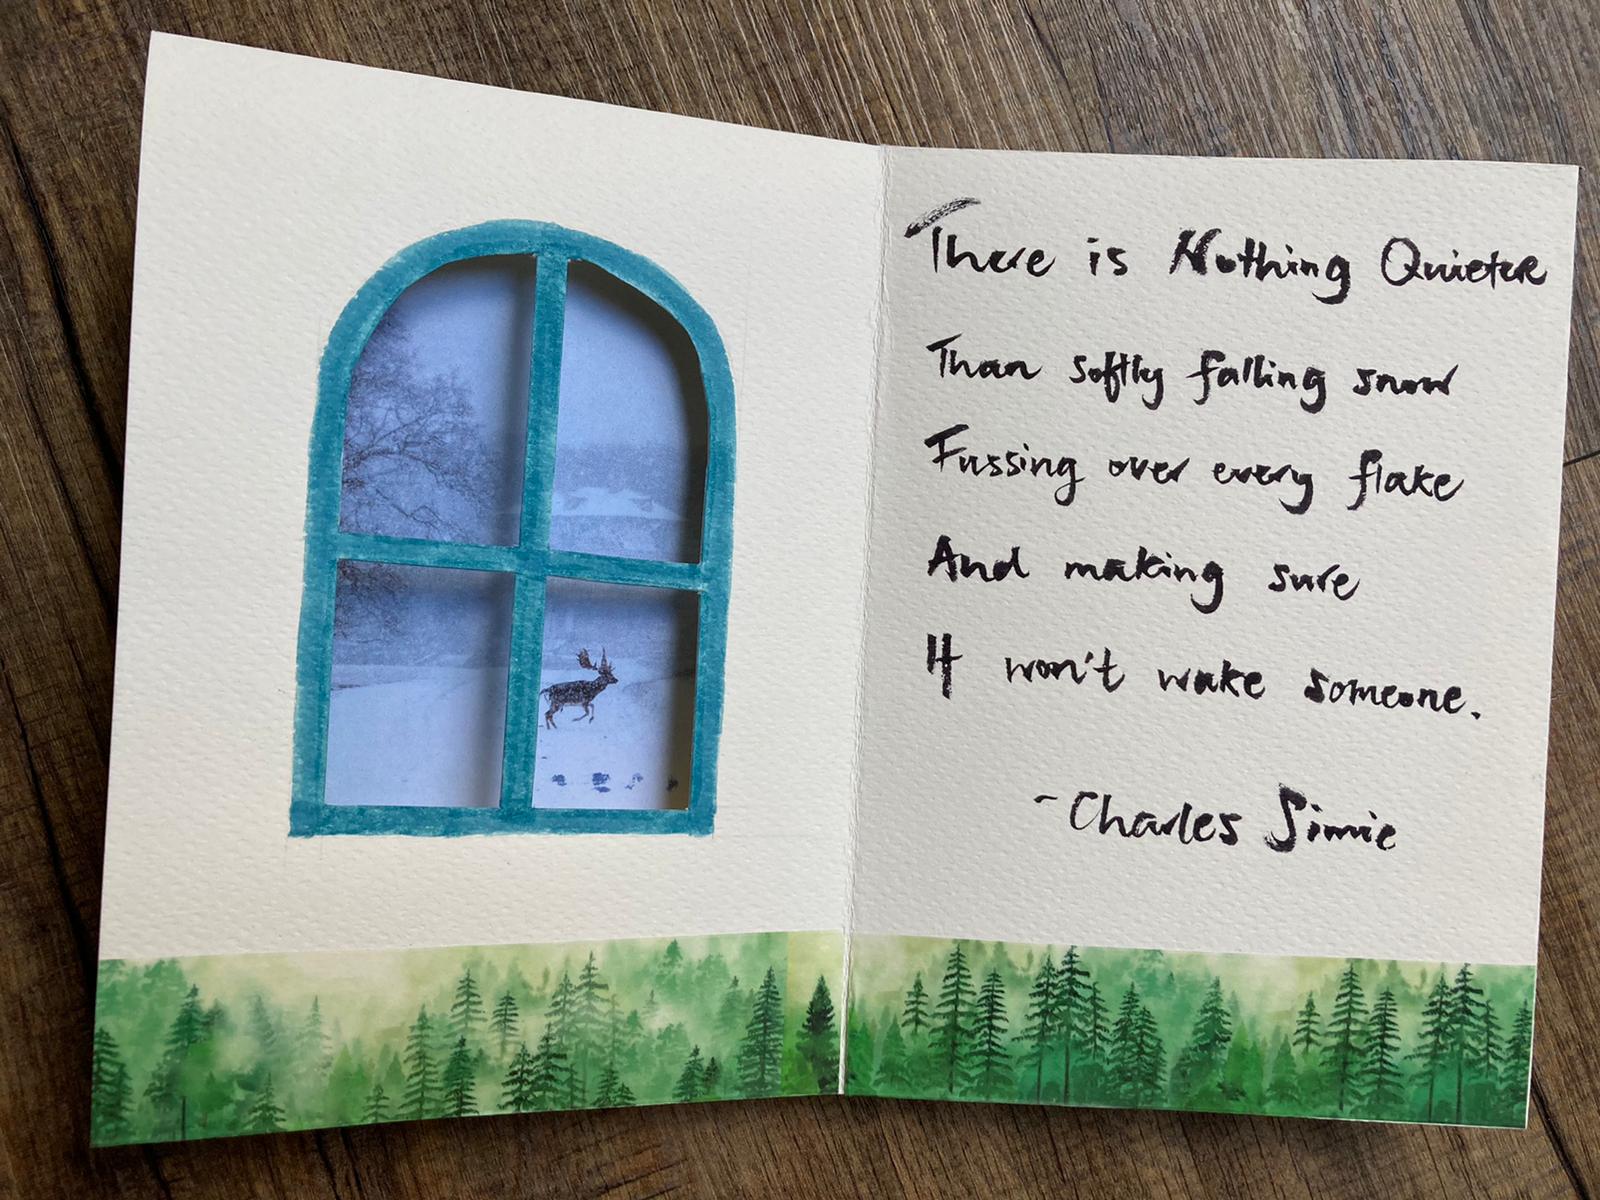 There is Nothing Quieter
Than softly falling snow
Fussing over every flake
And making sure
It won't wake someone.
- Charles Simic